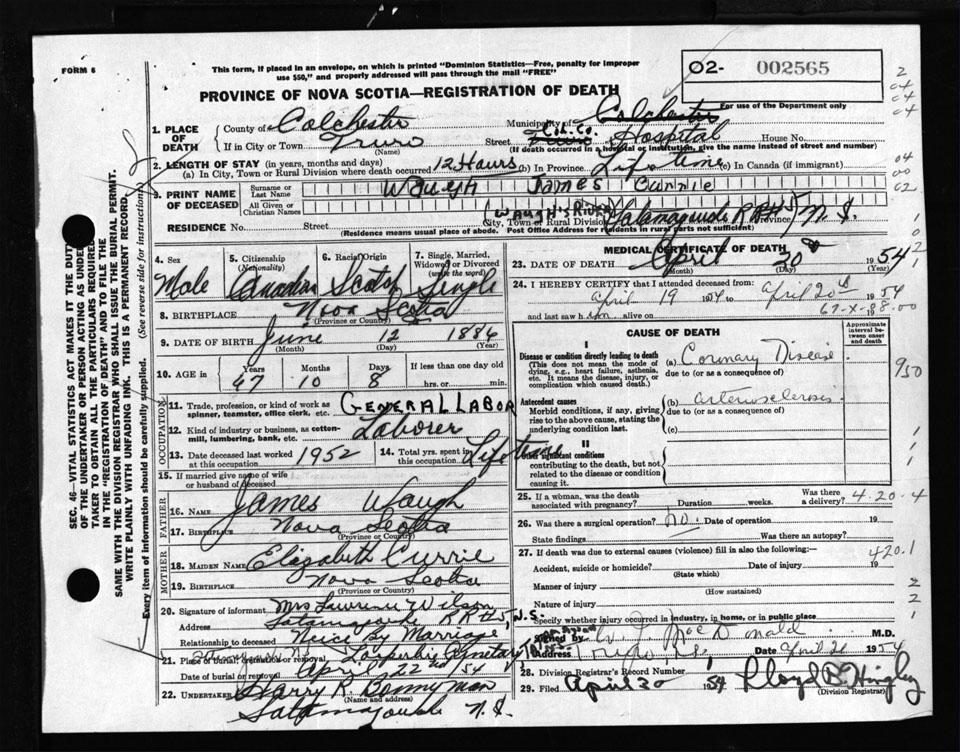 FORM 6
This form, if placed in an envelope, on which is printed "Dominion Statistics—Free, penalty for improper
use $50," and properly addressed will pass through the mail "FREE"
02- 002565
For use of the Department only
PROVINCE OF NOVA SCOTIA—REGISTRATION OF DEATH
1. PLACE OF DEATH
County of Colchester Municipality of Colchester
If in City or Town Truro Street Col. Co. Hospital House No.
(Name) (If death occurred in a hospital or institution, give the name instead of street and number)
2. LENGTH OF STAY (in years, months and days)
(a) In City, Town or Rural Division where death occurred 12 Hours (b) In Province Life time (c) In Canada (if immigrant)
3. PRINT NAME OF DECEASED
Surname or Last Name Waugh James Currie
All Given or Christian Names
RESIDENCE No. Street (Waugh's River City, Town or Rural Division Tatamagouche RR#5 Province) N.S.
(Residence means usual place of abode. Post Office Address for residents in rural parts not sufficient)
4. Sex Male
5. Citizenship (Nationality) Canadian
6. Racial Origin Scotch
7. Single, Married, Widowed or Divorced (write the word) Single
8. BIRTHPLACE Nova Scotia
(Province or Country)
9. DATE OF BIRTH June 12 1886
(Month) (Day) (Year)
10. AGE in Years 67 Months 10 Days 8 If less than one day old hrs. or min.
OCCUPATION
11. Trade, profession, or kind of work as spinner, teamster, office clerk, etc. GENERAL LABOR
12. Kind of industry or business, as cotton-mill, lumbering, bank, etc. Laborer
13. Date deceased last worked at this occupation 1952
14. Total yrs. spent in this occupation Life time
15. If married give name of wife or husband of deceased
FATHER
16. Name James Waugh
17. Birthplace Nova Scotia
(Province or Country)
MOTHER
18. MAIDEN NAME Elizabeth Currie
19. BIRTHPLACE Nova Scotia
(Province or Country)
20. Signature of informant Mrs Lawrence Wilson
Address Tatamagouche RR#5, N.S.
Relationship to deceased Neice by Marriage
21. Place of burial, cremation or removal Cemetary
Date of burial or removal April 22nd 54
22. Undertaker Harry R. Bonnyman
(Name and address)
Tatamagouche N.S.
MEDICAL CERTIFICATE OF DEATH
23. DATE OF DEATH April 20 1954
(Month) (Day) (Year)
24. I HEREBY CERTIFY that I attended deceased from
April 19 1954 to April 20th 1954
and last saw him alive on 67-X-88-00
CAUSE OF DEATH
Approximate interval between onset and death
I
Disease or condition directly leading to death
(This does not mean the mode of dying, e.g., heart failure, asthenia, etc. It means the disease, injury, or complication which caused death.)
(a) Coronary Disease
due to (or as a consequence of)
Antecedent causes
Morbid conditions, if any, giving rise to the above cause, stating the underlying condition last.
(b) arteriosclerosis
due to (or as a consequence of)
(c)
II
Other significant conditions
contributing to the death, but not related to the disease or condition causing it.
25. If a woman, was the death associated with pregnancy? Duration weeks. Was there a delivery? 4-20-4
26. Was there a surgical operation? no. Date of operation 19
State findings Was there an autopsy?
27. If death was due to external causes (violence) fill in also the following:—
Accident, suicide or homicide? Date of injury 19
(State which) 420.1
Manner of injury
(How sustained)
Nature of injury
Specify whether injury occurred in industry, in home, or in public place
Signed by MacDonald M.D.
Address Truro N.S. Date April 21 1954
28. Division Registrar's Record Number
29. Filed April 30 1954 Lloyd B. Hingley
(Division Registrar)
SEC. 46—VITAL STATISTICS ACT MAKES IT THE DUTY
OF THE UNDERTAKER OR PERSON ACTING AS UNDERTAKER TO OBTAIN ALL THE PARTICULARS REQUIRED
IN THE "REGISTRATION OF DEATH" AND TO FILE THE
SAME WITH THE DIVISION REGISTRAR WHO SHALL ISSUE THE BURIAL PERMIT.
WRITE PLAINLY WITH UNFADING INK. THIS IS A PERMANENT RECORD.
Every item of information should be carefully supplied. (See reverse side for instructions)
2
04
04
04
00
02
950